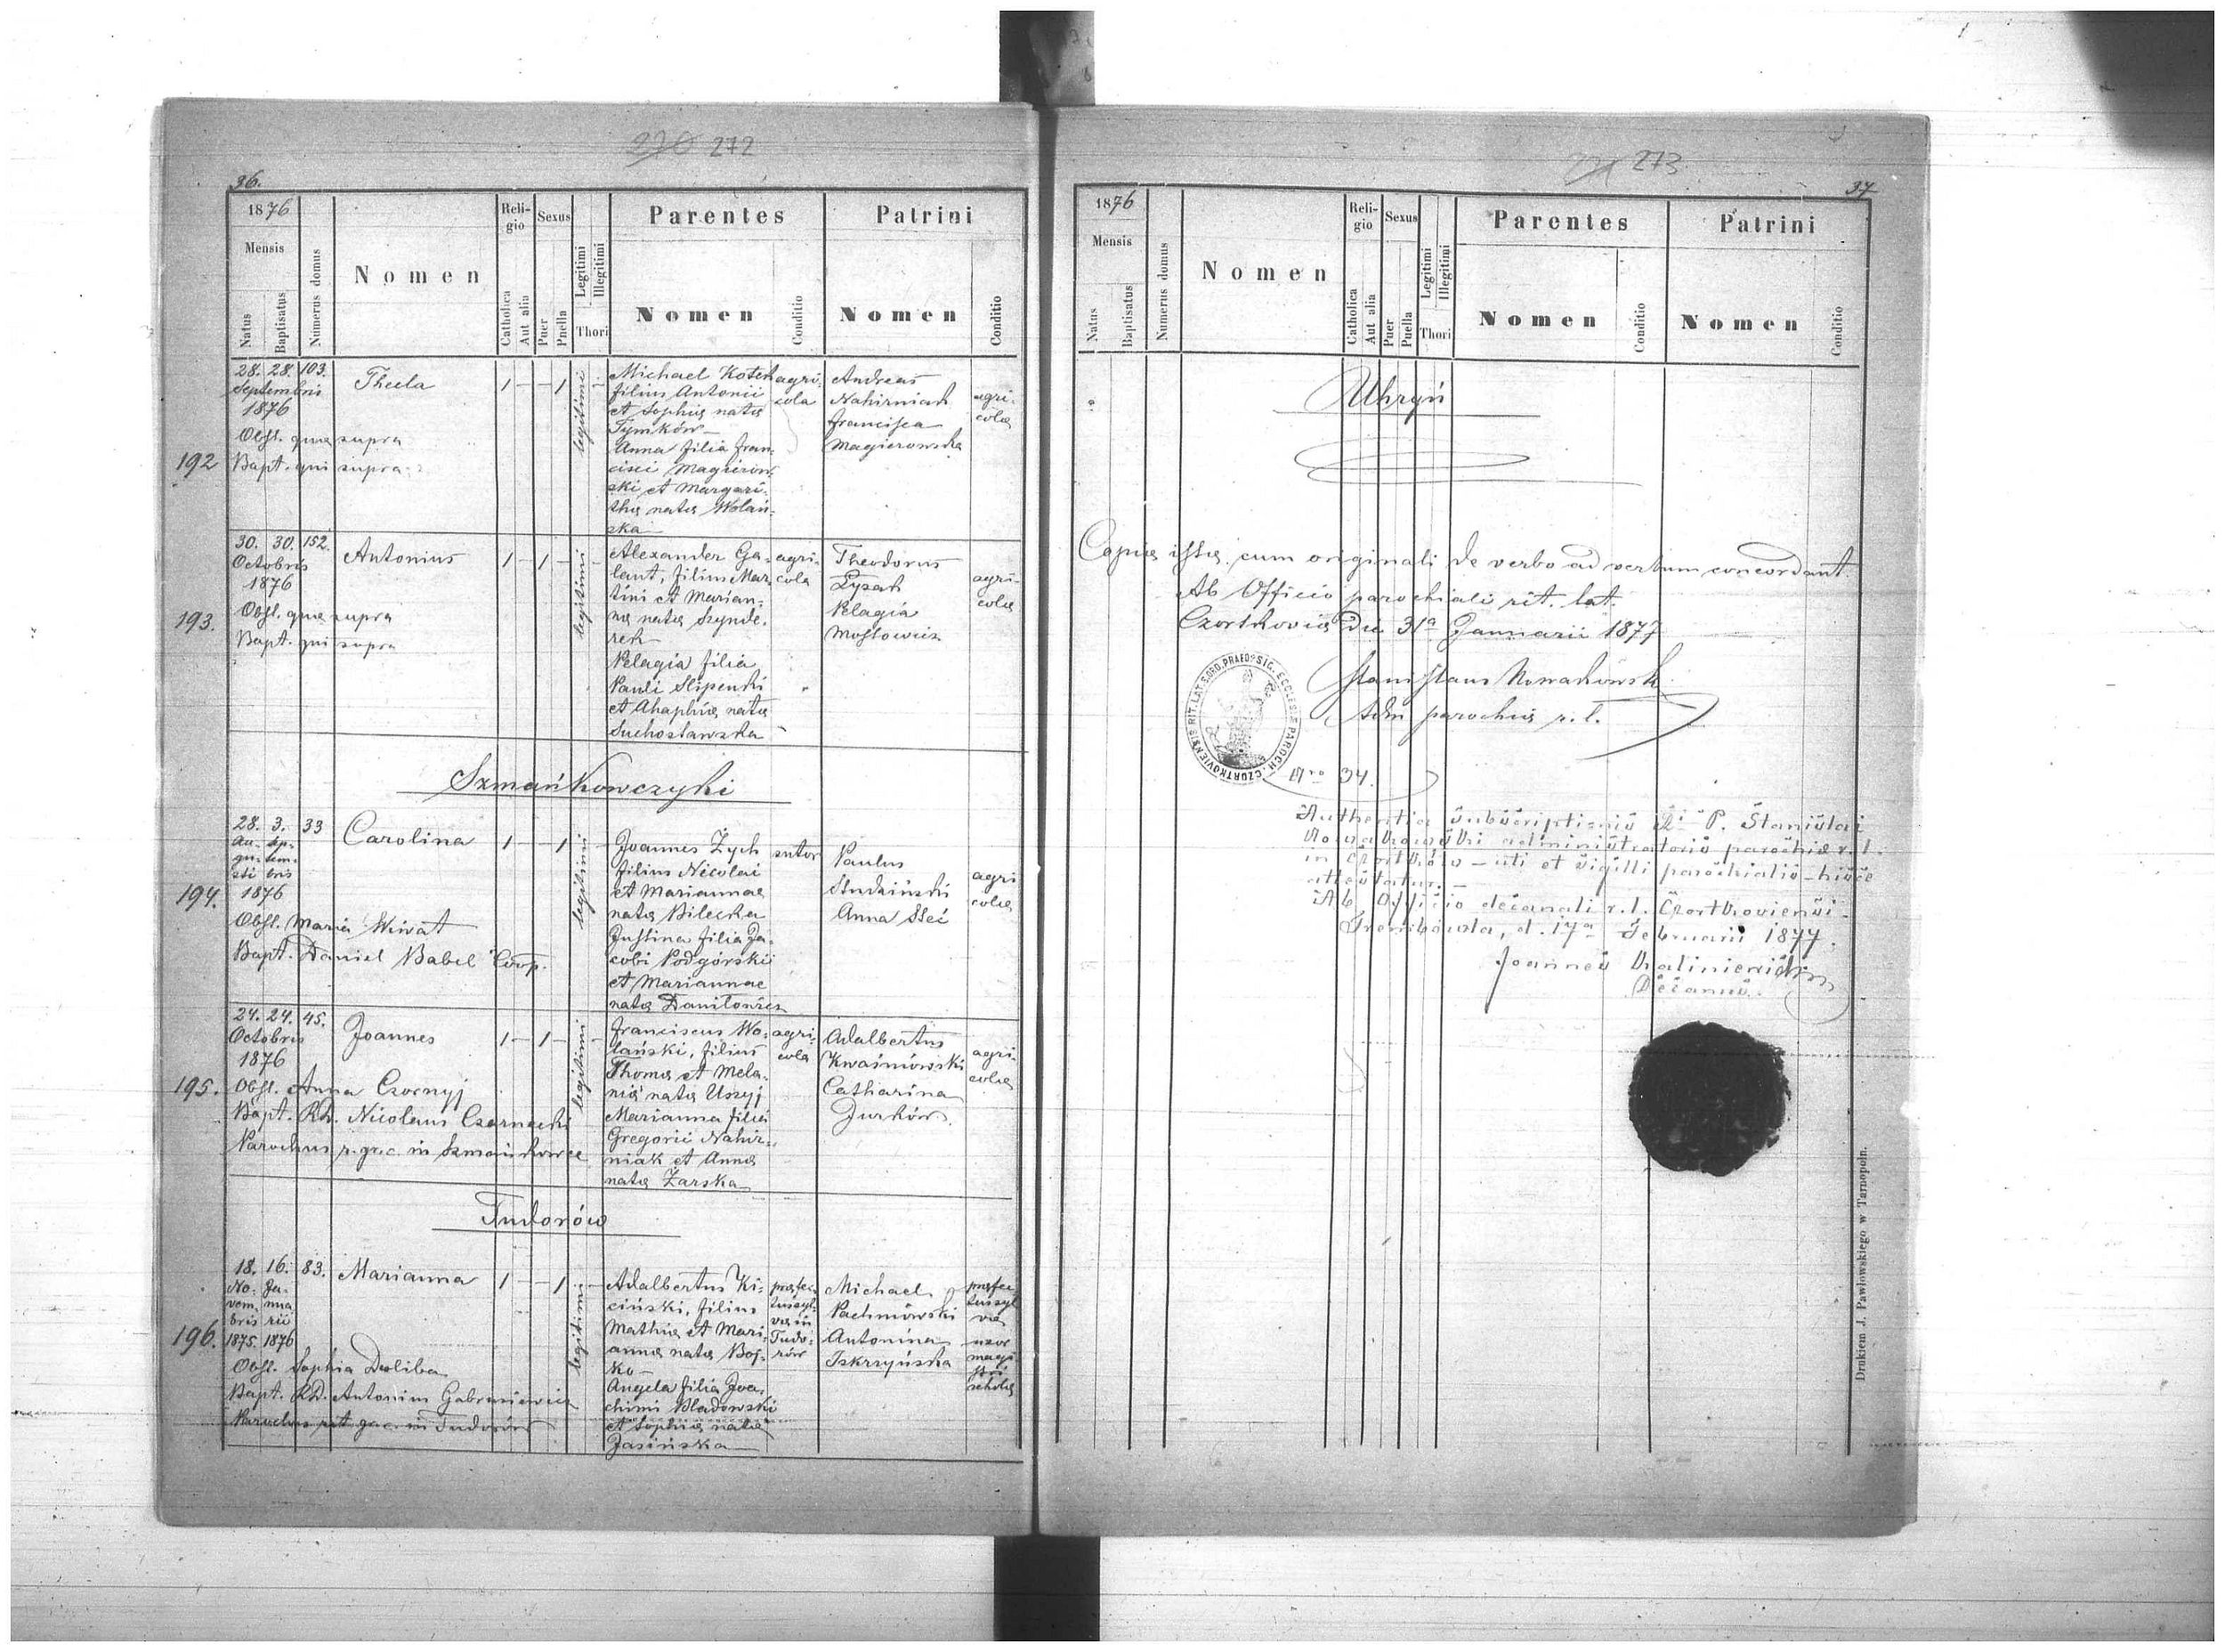 270 272
36.
1876
Mensis
Natus
Baptisatus
Numerus domus
Nomen
Religio
Catholica
Aut alia
Sexus
Puer
Puella
Legitimi
Illegitimi
Thori
Parentes
Nomen
Conditio
Patrini
Nomen
Conditio
192
28. 28. 103.
Septembris
1876
Obst. quae supra
Bapt. qui supra
Thecla
1 — — 1 —
legitimi
Michael
filius Antonii
et Sophia nata
Tymków
Anna filia Fran-
cisci Magierow-
ski et Margari-
tha nata Wolań-
ska
agri-
cola
Andreas
Nahirniak
Francisca
Magierowska
agri-
cola
193.
30. 30. 152.
Octobris
1876
Obst. quae supra
Bapt. qui supra
Antonius
1 — 1 — —
legitimi
Alexander Ga-
lant, filius Mar-
tini et Marian-
na nata Szynde-
rek
Pelagia filia
Pauli Slipenki
et Ahaphia nata
Suchosławska
agri-
cola
Theodorus
Łysak
Pelagia
Mossowicz
agri-
cola
Szmańkowczyki
194.
28. 3. 33
Au- Sep-
gu- tem-
sti bris
1876
Obst. Maria Wiwat
Bapt. Daniel Babel Coop.
Carolina
1 — — 1 —
legitimi
Joannes Zych
filius Nicolai
et Mariannae
nata Bilecka
Justina filia Ja-
cobi Podgórski
et Mariannae
nata Daniłowicz
sutor
Paulus
Studziński
Anna Steć
agri
cola
195.
24. 24. 45.
Octobris
1876
Obst. Anna Czornyj
Bapt. RD. Nicolaus Czarnecki
Parochus r. grc. in Szmańkowce
Joannes
1 — 1 — —
legitimi
Franciscus Wo-
lański, filius
Thoma et Mela-
nia nata Uszyj
Marianna filia
Gregorii Nahir-
niak et Anna
nata Żarska
agri-
cola
Adalbertus
Kwaśniowski
Catharina
Jurków
agri-
cola
Tudorów
196.
18. 16. 83.
No- Ja-
vem- nua
bris rii
1875. 1876
Obst. Sophia Duliba
Bapt. RD. Antonim Gabrusiewicz
Parochus rit. grc. in Tudorów
Marianna
1 — — 1 —
legitimi
Adalbertus Ki-
ciński, filius
Mathia et Mari-
anna nata Boj-
ko
Angela filia Joa-
chimi Bladowski
et Sophia nata
Jasińska
præfec
tus syl-
va in
Tudo-
rów
Michael
Pachniowski
Antonina
Iskrzyńska
præfec
tus syl
va
uxor
magi
stri
schola
273
37
1876
Mensis
Natus
Baptisatus
Numerus domus
Nomen
Religio
Catholica
Aut alia
Sexus
Puer
Puella
Legitimi
Illegitimi
Thori
Parentes
Nomen
Conditio
Patrini
Nomen
Conditio
Uhryń
Copia ista cum originali de verbo ad verbum concordant.
Ab Officio parochiali rit. lat.
Czortkovia die 31a Januarii 1877
Stanislaus Nowakowski
Adm parochia r. l.
Nro 34.
Authentia subscriptionis P. Stanislai
Nowakowski administratoris parochia r. l.
in Czortków — uti et sigilli parochialis hisce
attestatur. —
Ab Officio decanali r. l. Czortkoviensi.
Trembowla, d. 17a Februarii 1877.
Joannes Kaliniewicz
Decanus.
Drukiem J. Pawłowskiego w Tarnopolu.